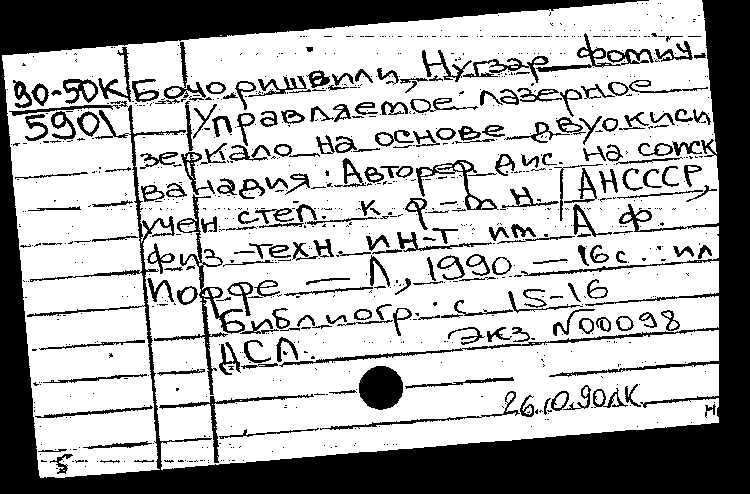 90-50К Бочоришвили, Нугзар Фотич
5901 Управляемое лазерное
зеркало на основе двуокиси
ванадия : Автореф дис. на соиск
учен степ. к. ф.-м. н. / АНСССР,
физ.-техн. ин-т им. А Ф.
Иоффе — Л., 1990. — 16с. : ил
Библиогр. : с. 15-16
ДСП. Экз. №00098
26.10.90 ЛК.
5